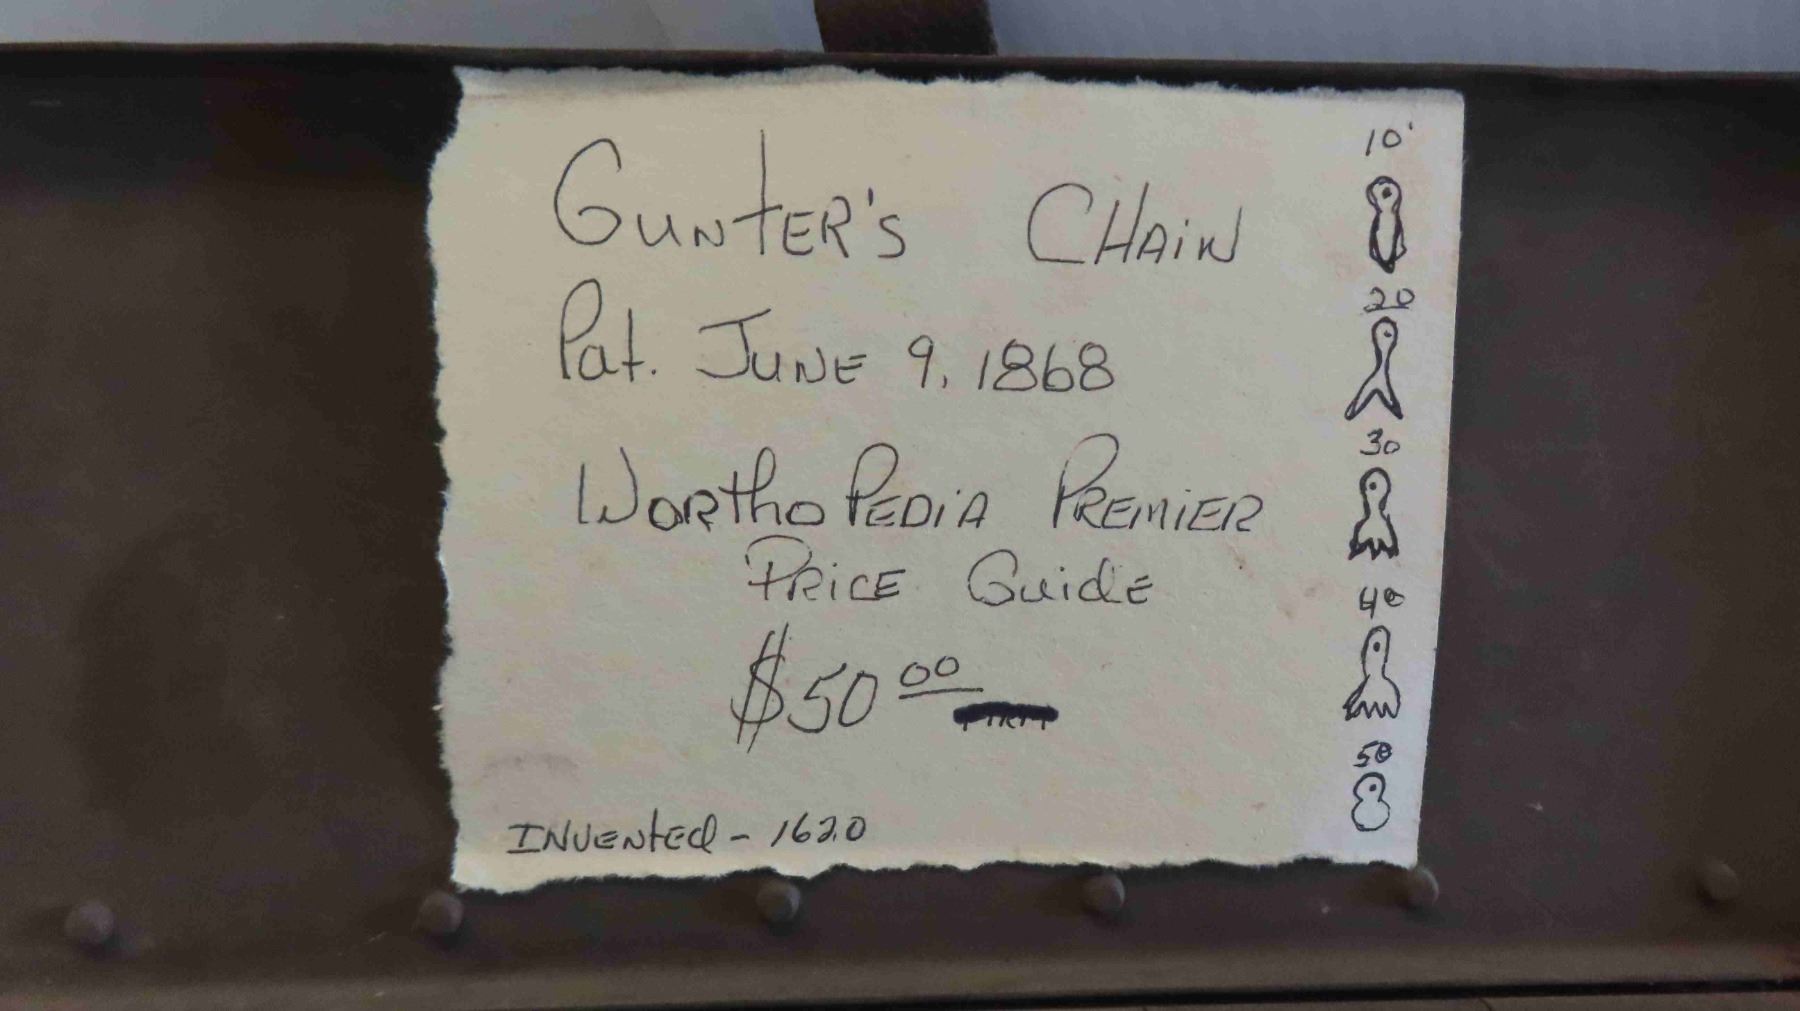 GUNTER'S CHAIN
Pat. JUNE 9, 1868
WORTHOPEDIA PREMIER
PRICE GUIDE
$50 00
INVENTED - 1620
10'
20
30
40
50